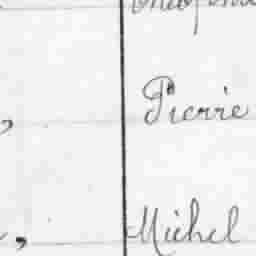 Pierre
Michel